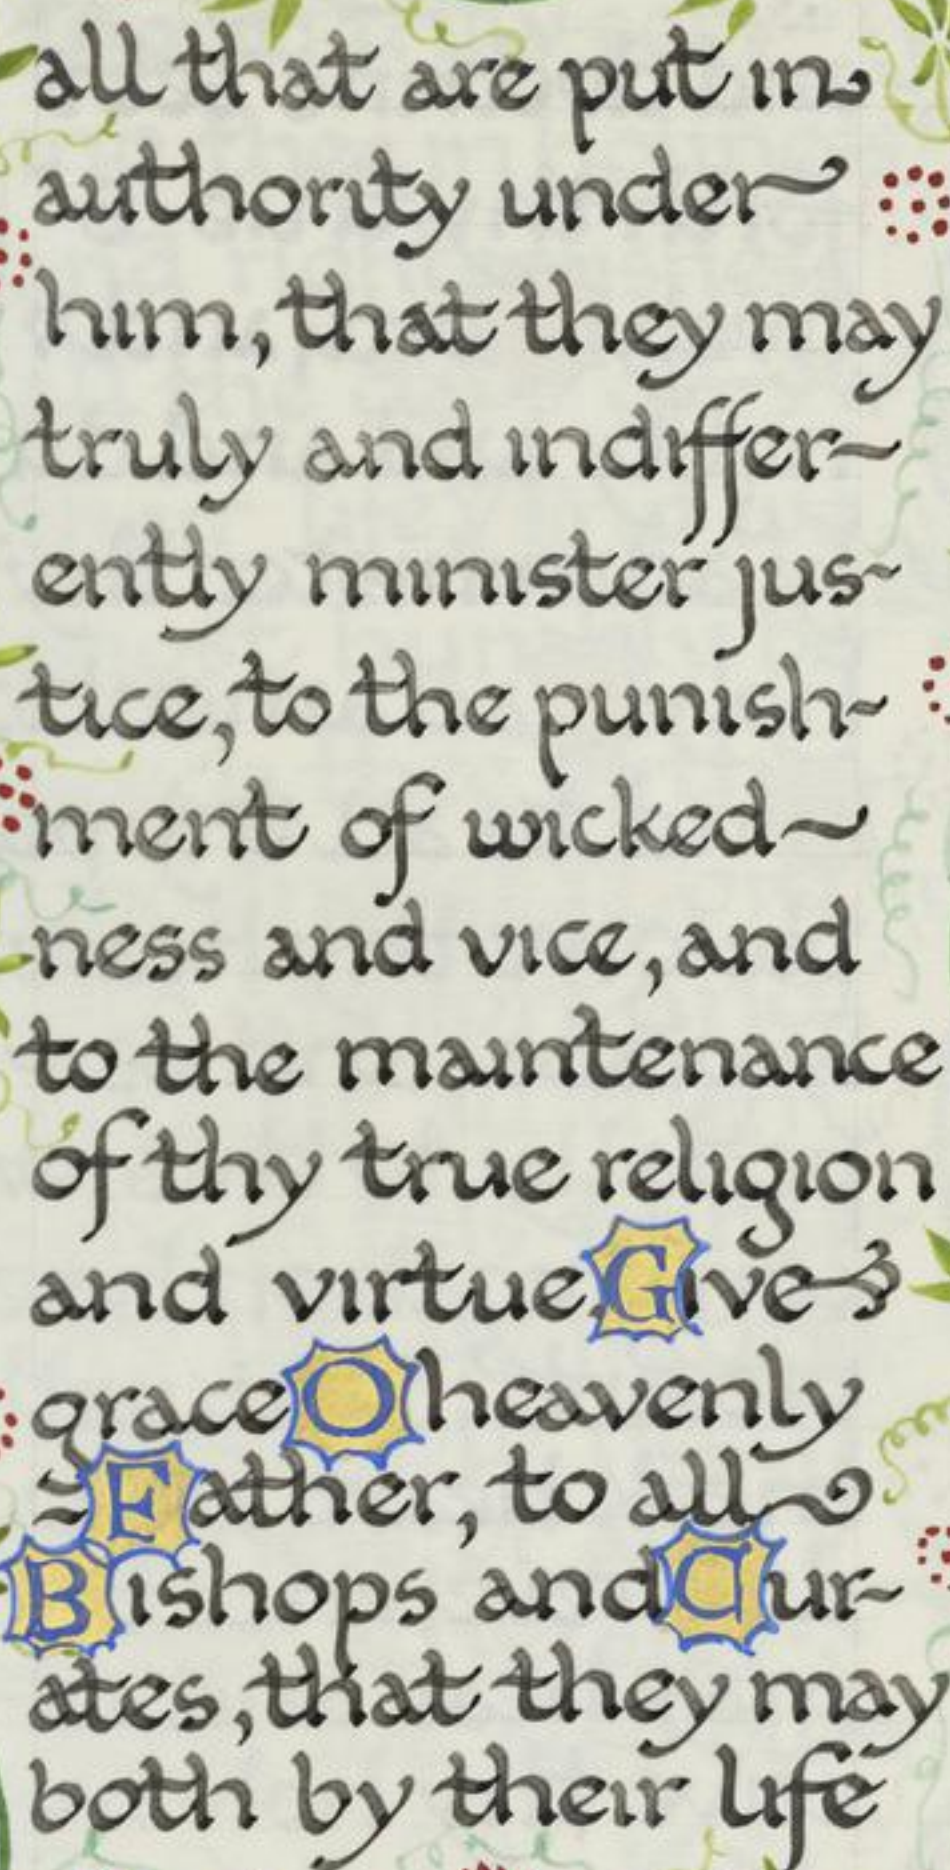 all that are put in
authority under
him, that they may
truly and indiffer-
ently minister jus-
tice, to the punish-
ment of wicked-
ness and vice, and
to the maintenance
of thy true religion
and virtue. Give
grace O heavenly
Father, to all
Bishops and Cur-
ates, that they may
both by their life